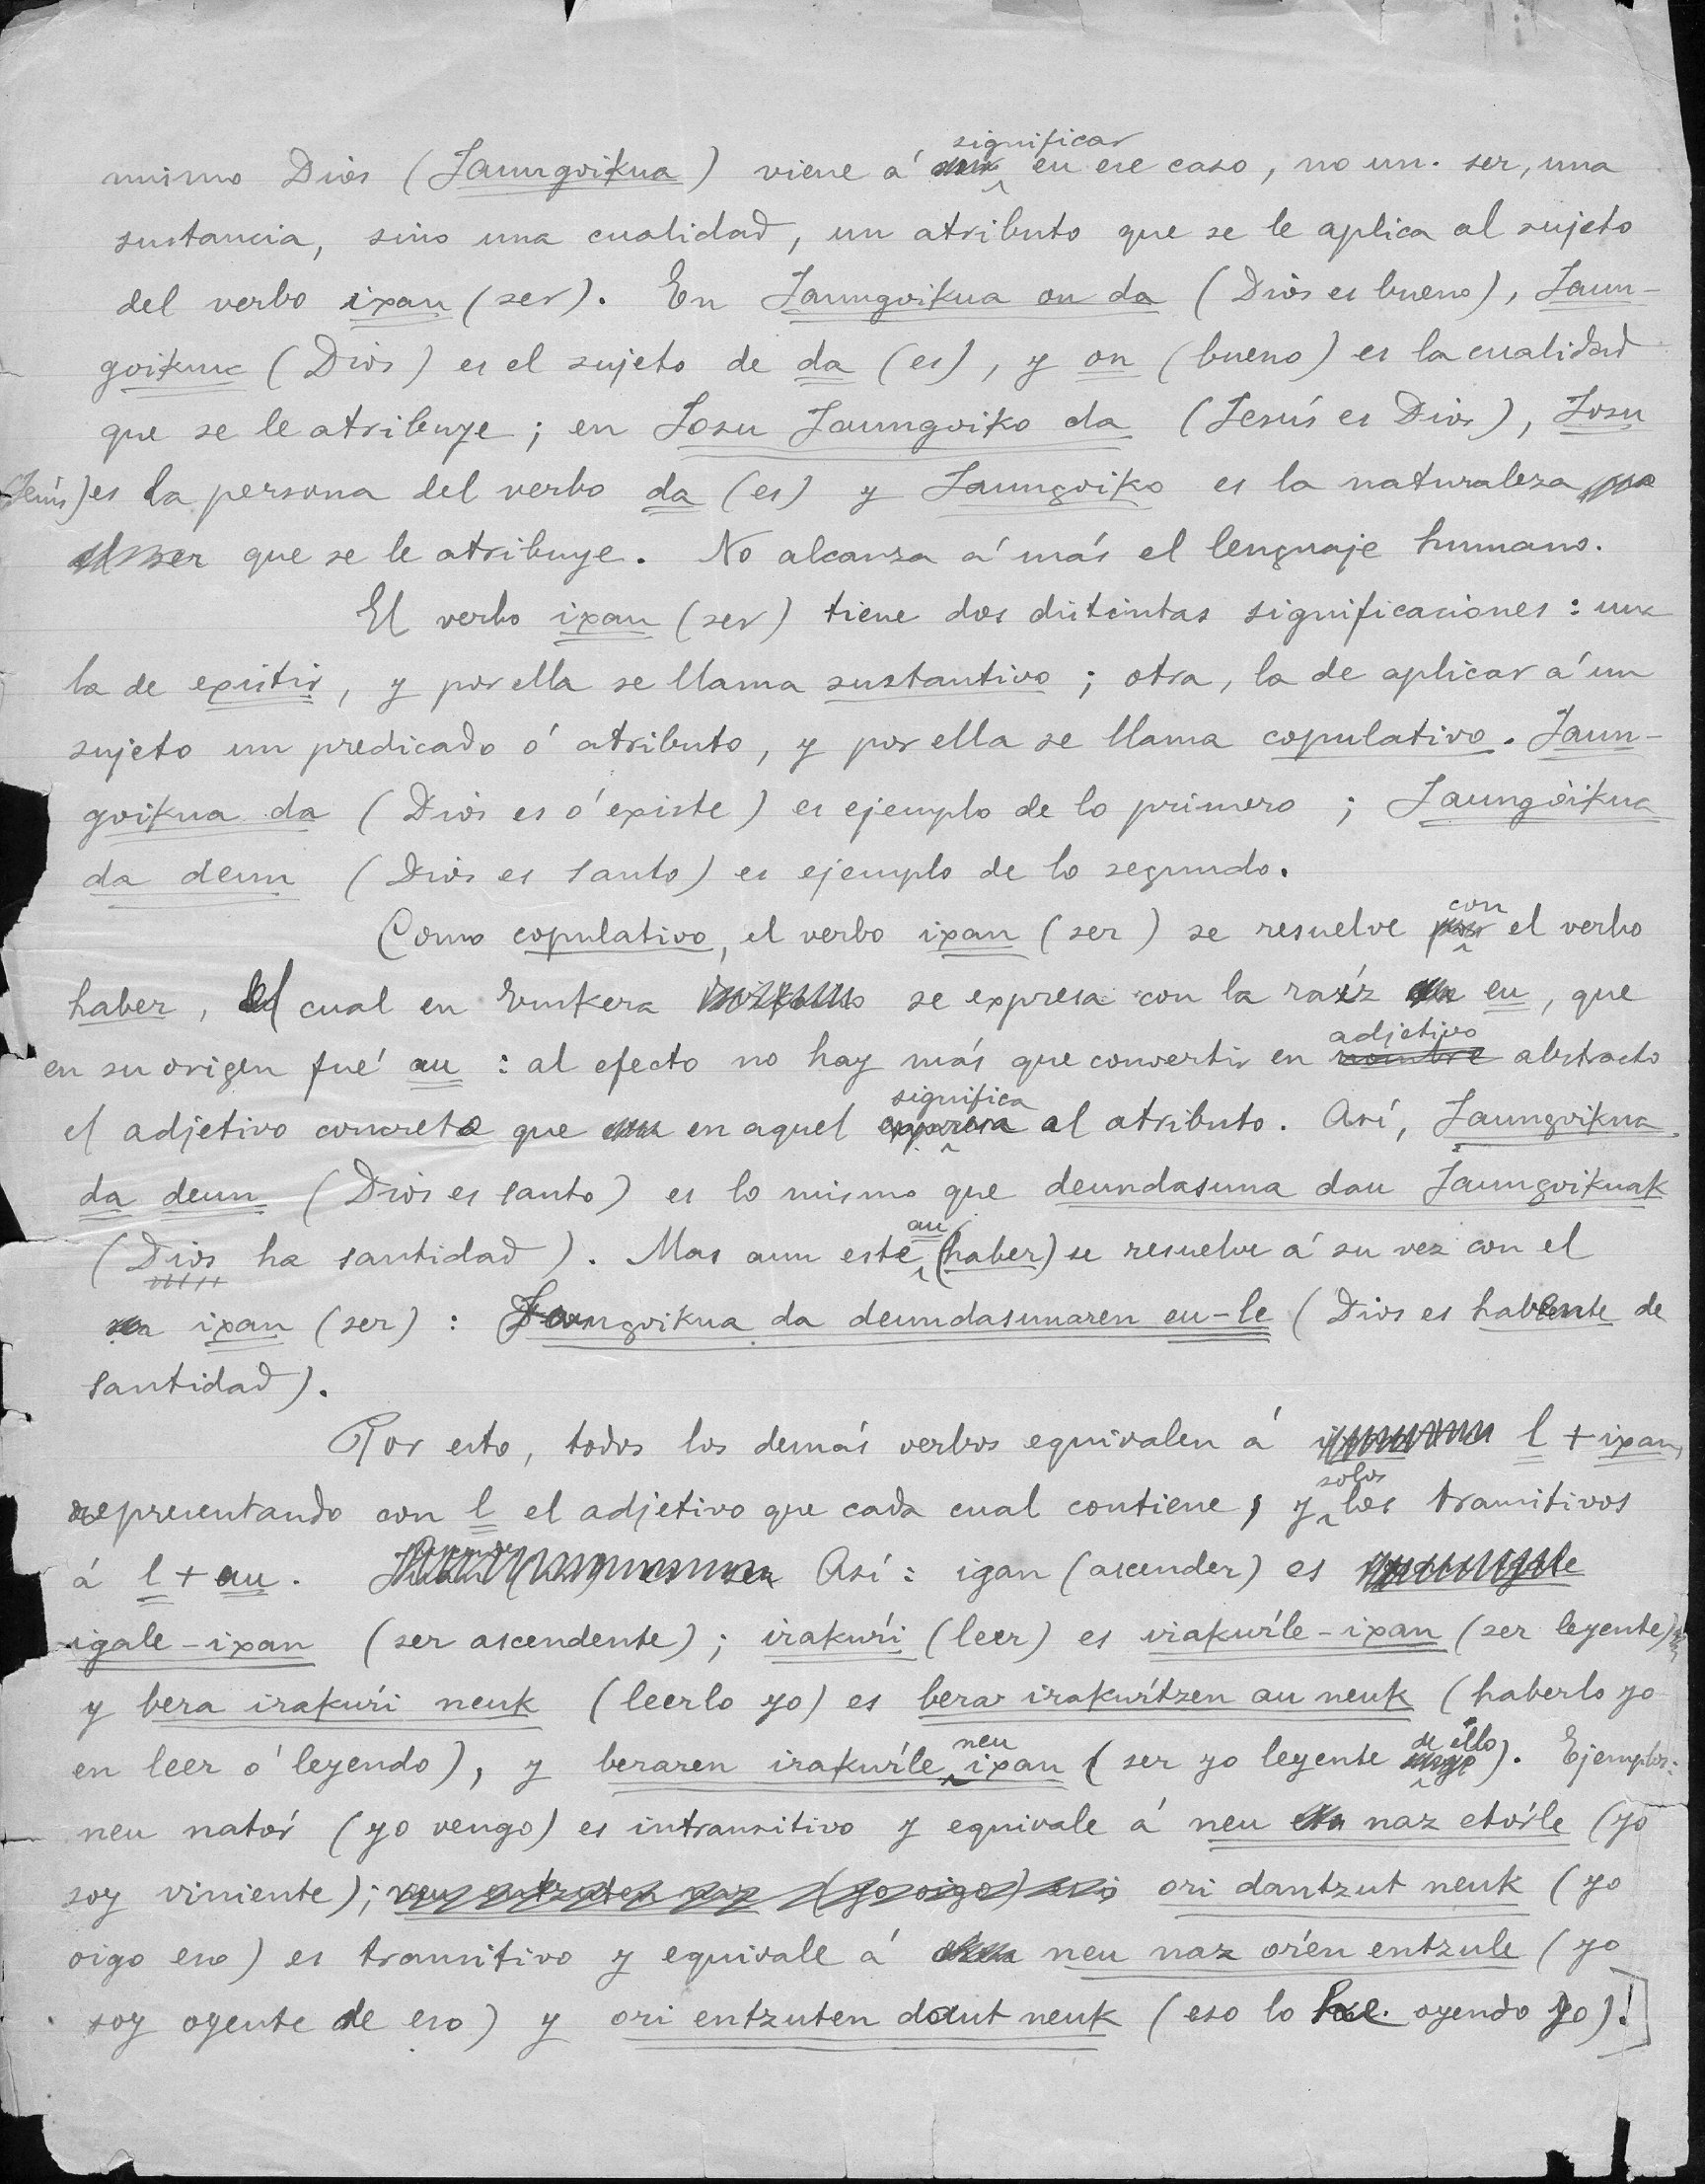 mismo Dios (Jaungoikua) viene á significar en ese caso, no un ser, una
sustancia, sino una cualidad, un atributo que se le aplica al sujeto
del verbo ixan (ser). En Jaungoikua on da (Dios es bueno), Jaun-
goikua (Dios) es el sujeto de da (es), y on (bueno) es la cualidad
que se le atribuye; en Josu Jaungoiko da (Jesús es Dios), Josu
(Jesús) es la persona del verbo da (es) y Jaungoiko es la naturaleza
ser que se le atribuye. No alcanza á más el lenguaje humano.
El verbo ixan (ser) tiene dos distintas significaciones: una
la de existir, y por ella se llama sustantivo; otra, la de aplicar á un
sujeto un predicado ó atributo, y por ella se llama copulativo. Jaun-
goikua da (Dios es ó existe) es ejemplo de lo primero; Jaungoikua
da deun (Dios es santo) es ejemplo de lo segundo.
Como copulativo, el verbo ixan (ser) se resuelve con el verbo
haber, el cual en Euzkera se expresa con la raíz eu, que
en su origen fué au: al efecto no hay más que convertir en nombre adjetivo abstracto
el adjetivo concreto que en aquel expresa significa al atributo. Así, Jaungoikua
da deun (Dios es santo) es lo mismo que deundasuna dau Jaungoikuak
(Dios ha santidad). Mas aun este au (haber) se resuelve á su vez con el
ixan (ser): Jaungoikua da deundasunaren eu-le (Dios es habiente de
santidad).
Por esto, todos los demás verbos equivalen á l + ixan,
representando con l el adjetivo que cada cual contiene, y solos los transitivos
á l + au. Así: igan (ascender) es
igale-ixan (ser ascendente); irakuŕi (leer) es irakuŕle-ixan (ser leyente)
y bera irakuŕi neuk (leerlo yo) es bera irakuŕtzen au neuk (haberlo yo
en leer ó leyendo), y beraren irakuŕle neu ixan (ser yo leyente de ello). Ejemplos:
neu natoŕ (yo vengo) es intransitivo y equivale á neu naz etoŕle (yo
soy viniente); neu entzuten naz (yo oigo) ori dantzut neuk (yo
oigo eso) es transitivo y equivale á neu naz oŕen entzule (yo
soy oyente de eso) y ori entzuten daut neuk (eso lo he oyendo yo).]